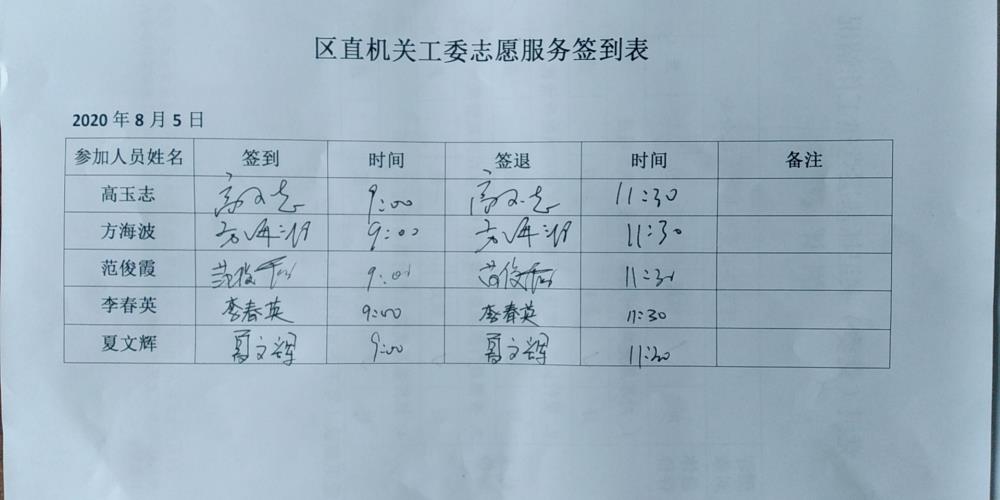 区直机关工委志愿服务签到表
2020 年 8 月 5 日
参加人员姓名 签到 时间 签退 时间 备注
高玉志 高玉志 9:00 高玉志 11:30
方海波 方海波 9:00 方海波 11:30
范俊霞 范俊霞 9:00 范俊霞 11:30
李春英 李春英 9:00 李春英 11:30
夏文辉 夏文辉 9:00 夏文辉 11:30